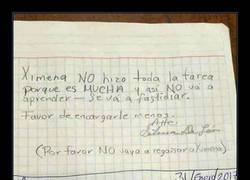 Ximena NO hizo toda la tarea
porque es MUCHA y así NO va a
aprender — se va a fastidiar.
Favor de encargarle menos.
Atte:
(Por favor NO vaya a regañar a Ximena)
31/Enero/201